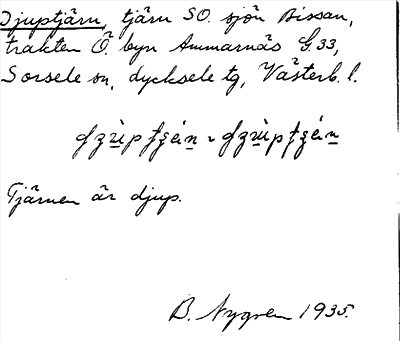 Djuptjärn, tjärn SO. sjön Bissan,
trakten Ö. byn Ammarnäs G. 33,
Sorsele sn, Lycksele tg, Västerb. l.
Tjärnen är djup.
B. Nygren 1935.